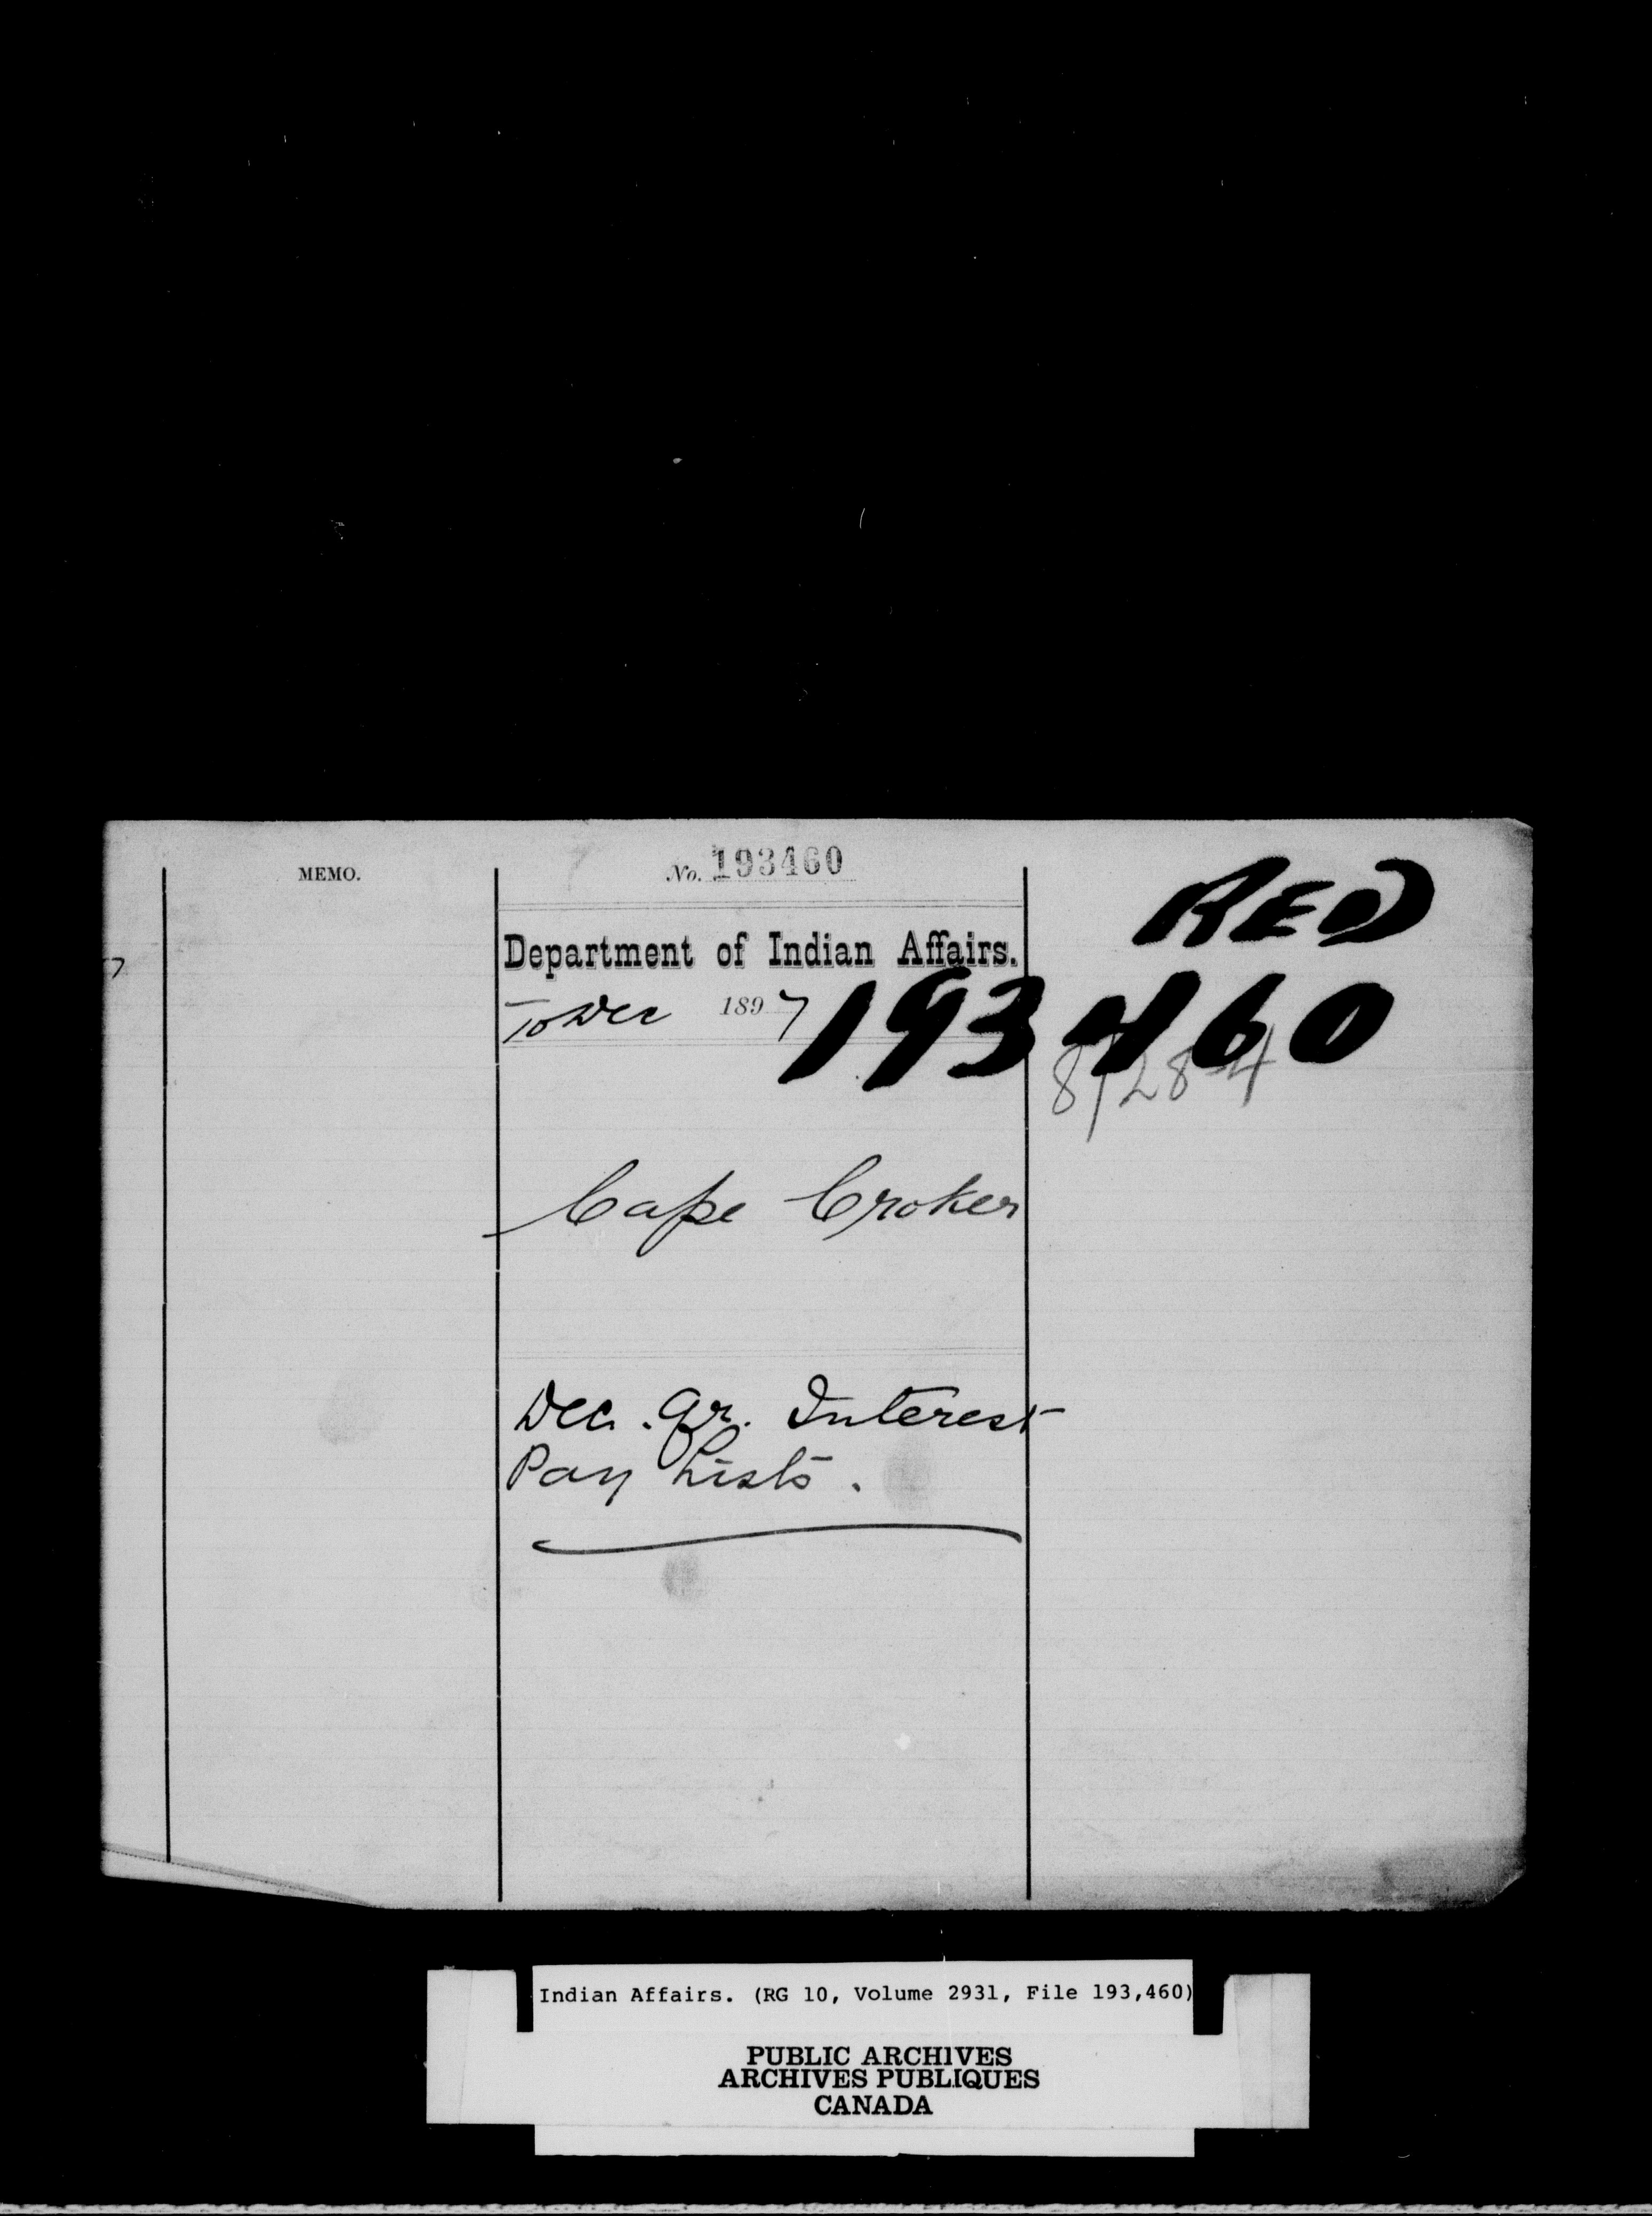 MEMO.
No. 193460
RED
Department of Indian Affairs.
7
To Dec 1897
193460
8/28-4
Cape Croker
Dec. Qr. Interest
Pay Lists.
Indian Affairs. (RG 10, Volume 2931, File 193,460)
PUBLIC ARCHIVES
ARCHIVES PUBLIQUES
CANADA